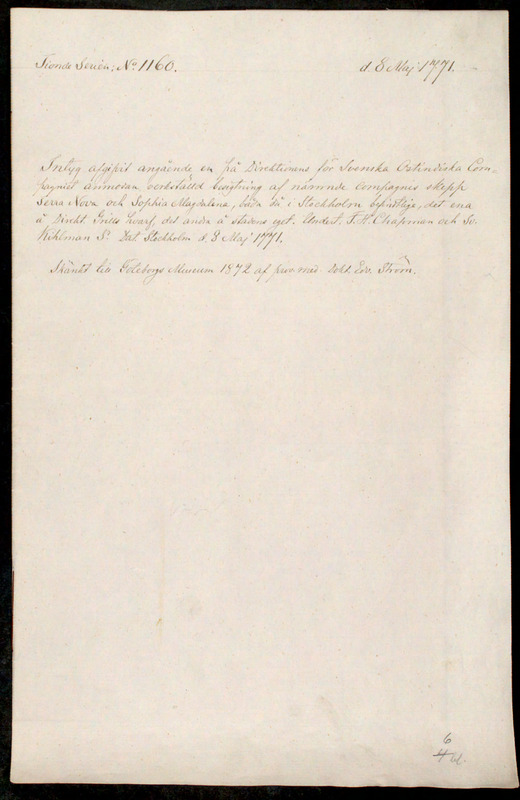 Tionde Serien; No 1160.
d. 8 Maj 1771.
Intyg afgifvit angående en på Direktionens för Svenska Ostindiska Com-
pagniet anmodan verkställd besigtning af nämnde compagnies skepp
Terra Nova och Sophia Magdalena, båda då i Stockholm befintlige, det ena
å Direkt. Grills hvarf, det andra å stadens eget. Undert. F. H. Chapman och Sv.
Kihlman Sr. Dat. Stockholm d. 8 Maj 1771.
Skänkt till Göteborgs Museum 1872 af prov. med. Dokt. Edv. Ström.
6
4 bl.